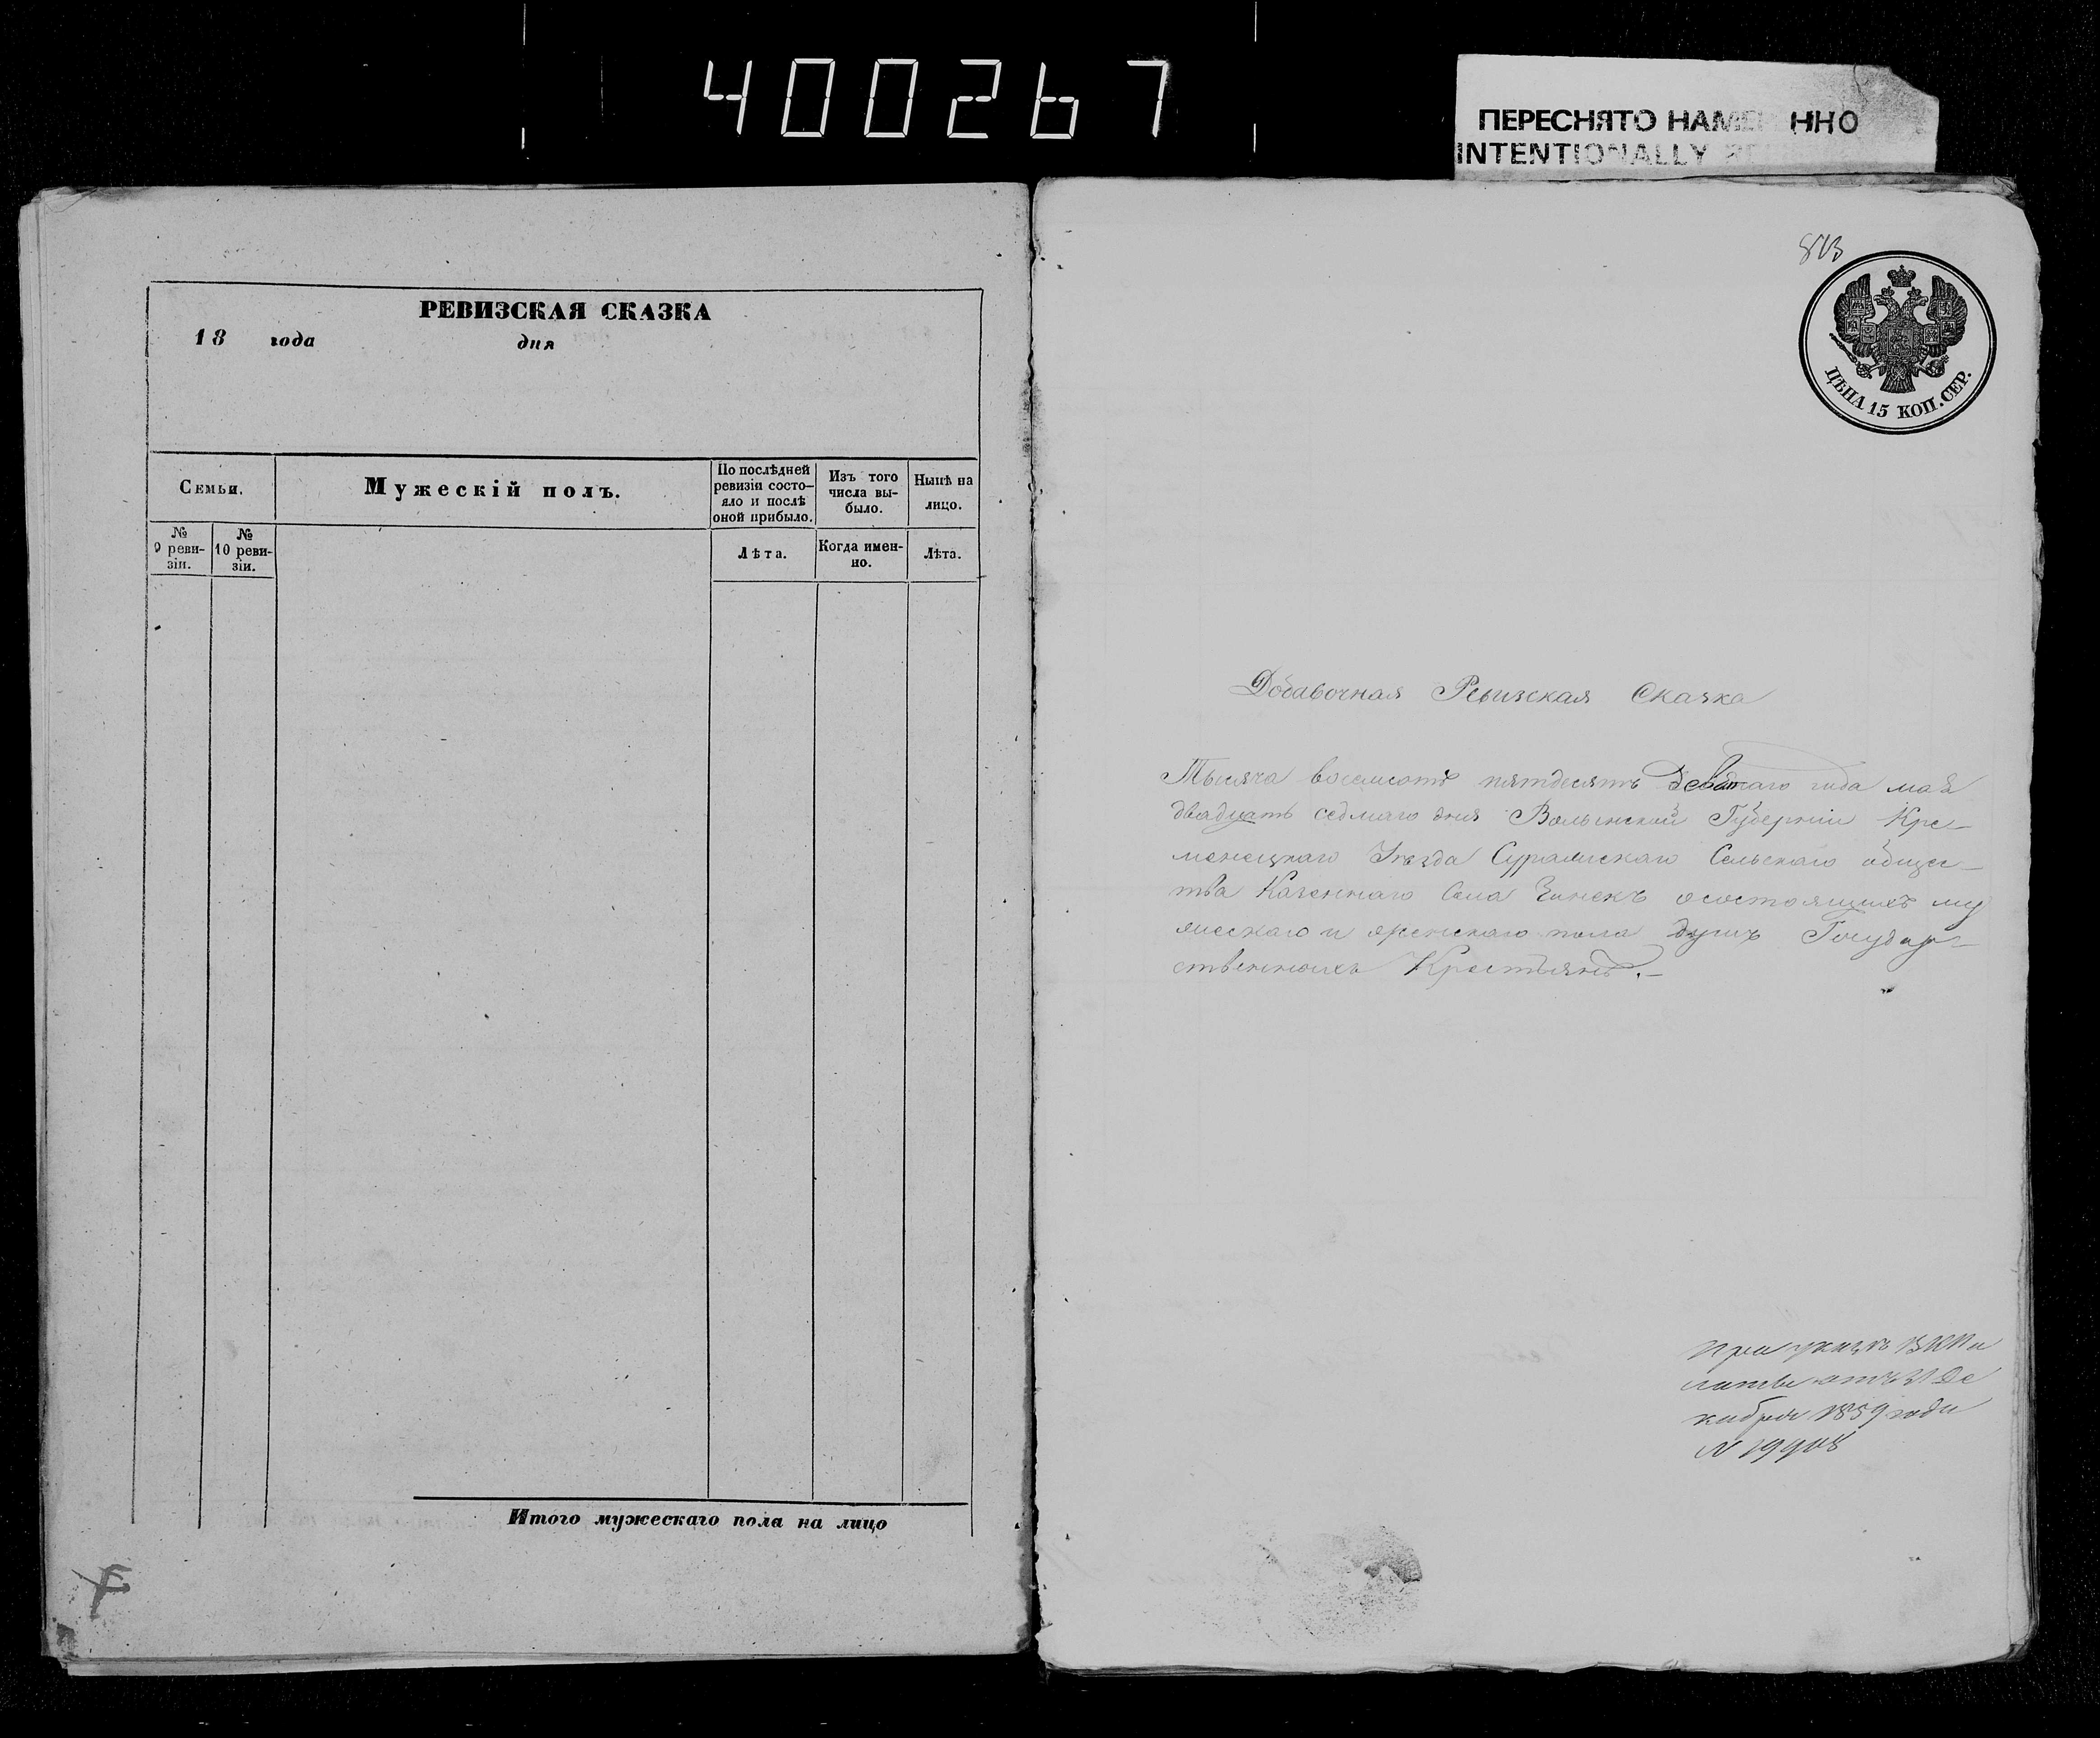 400267
ПЕРЕСНЯТО НАМЕ ННО
INTENTIONALLY RE
РЕВИЗСКАЯ СКАЗКА
18 года дня
Семьи.
Мужескій полъ.
По послѣдней
ревизіи состо-
яло и послѣ
оной прибыло.
Изъ того
числа вы-
было.
Нынѣ на
лицо.
№
9 реви-
зіи.
№
10 реви-
зіи.
Лѣта.
Когда имен-
но.
Лѣта.
Итого мужескаго пола на лицо
ЦѢНА 15 КОП. СЕР.
Добавочная Ревизская Сказка
Тысяча восемсотъ пятдесятъ девятаго года мая
двадцать седмаго дня Волынской Губерніи Кре-
менецкаго Уѣзда Суражскаго Сельскаго общес-
тва Казеннаго Села осостоящихъ му
жескаго и женскаго пола душъ Государ-
ственныхъ Крестьянъ.-
При указѣ
латы отъ 31 Де
кабря 1859 года
N 19908